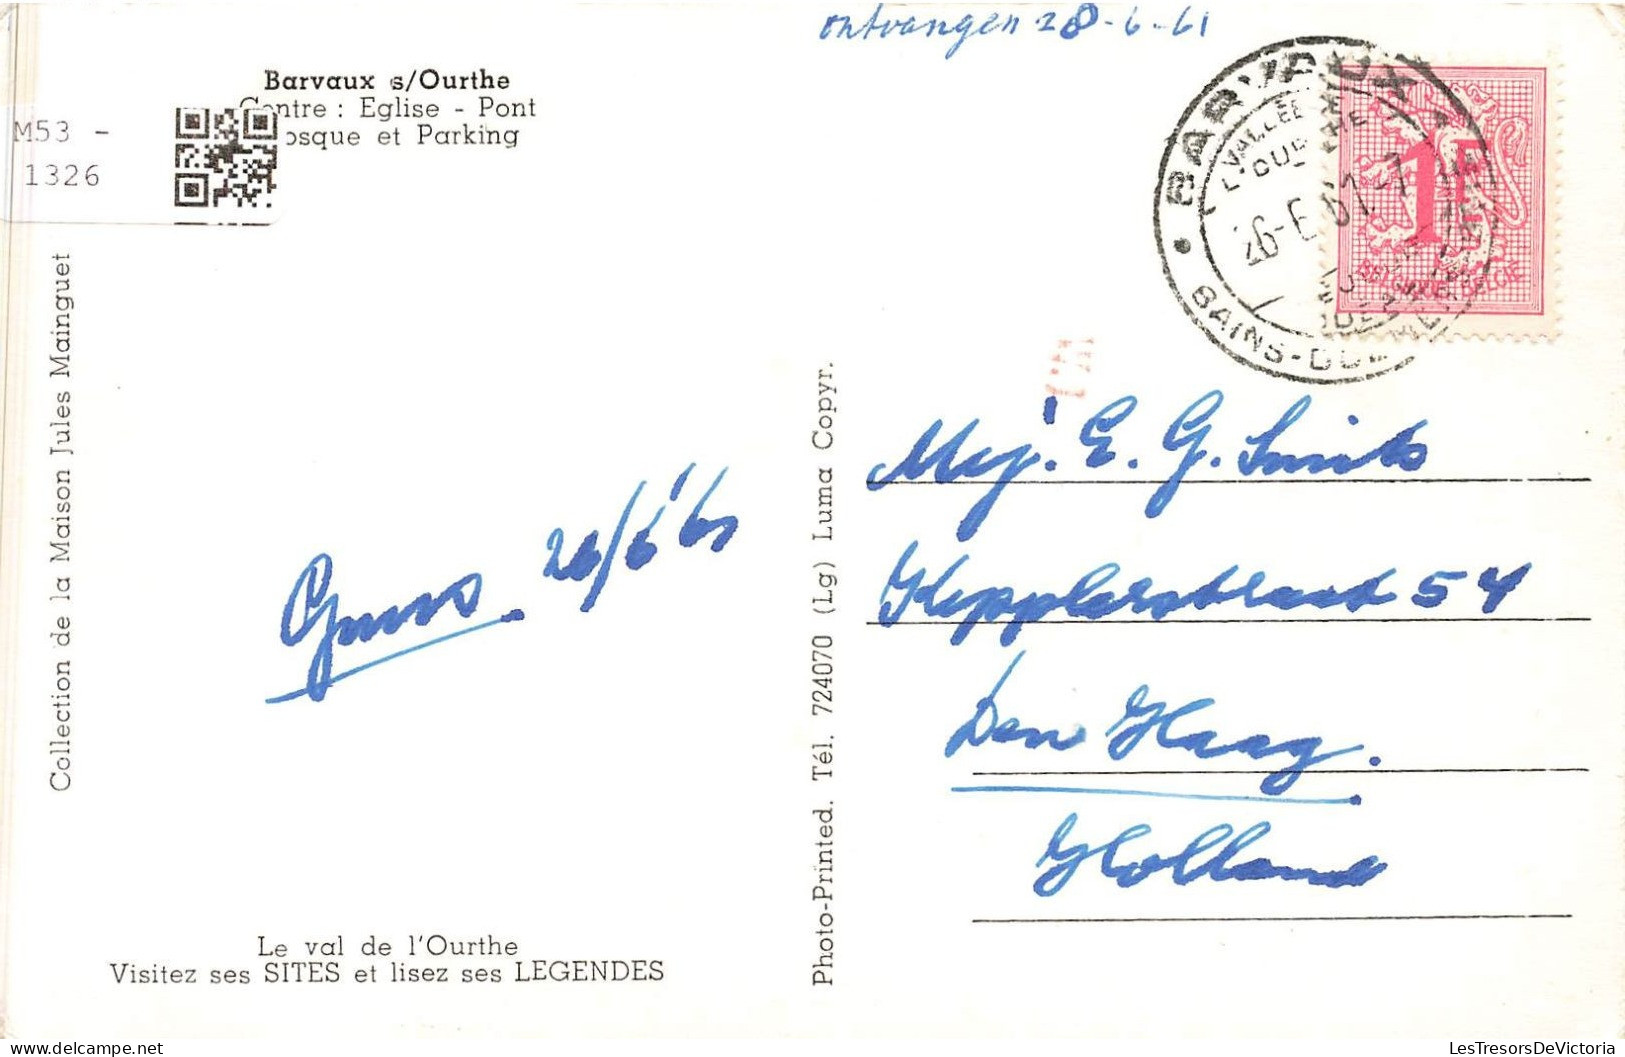 ontvangen 28-6-61
Barvaux s/Ourthe
Centre : Eglise - Pont
osque et Parking
M53 -
1326
BARVAUX
VALLÉE
26-6
BAINS-DOU
BELGIQUE-BELGIE
Collection de la Maison Jules Mainguet
26/6'61
Photo-Printed. Tél. 724070 (Lg) Luma Copyr.
Mej. E. G. Smits
Kepplerstraat 54
Den Haag.
Holland
Le val de l'Ourthe
Visitez ses SITES et lisez ses LEGENDES
LesTresorsDeVictoria